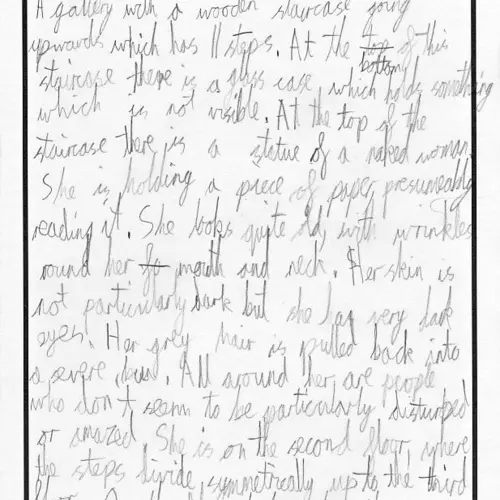 A gallery with a wooden staircase going
upwards which has 11 steps. At the top bottom of this
staircase there is a glass case which holds something
which is not visible. At the top of the
staircase there is a statue of a naked woman.
She is holding a piece of paper, presumeably
reading it. She looks quite old, with wrinkles
round her fa mouth and neck. Her skin is
not particularly dark but she has very dark
eyes. Her grey hair is pulled back into
a severe bun. All around her are people
who don't seem to be particularly disturbed
or amazed. She is on the second floor, where
the steps divide, symmetrically, up to the third